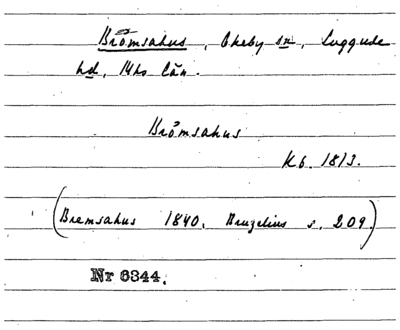 Brömsahus, Ekeby sn, Luggude
hd, Mhs län.
Brömsahus
Kb. 1813.
(Bremsahus 1840. Bruzelius s. 209.)
Nr 6344.